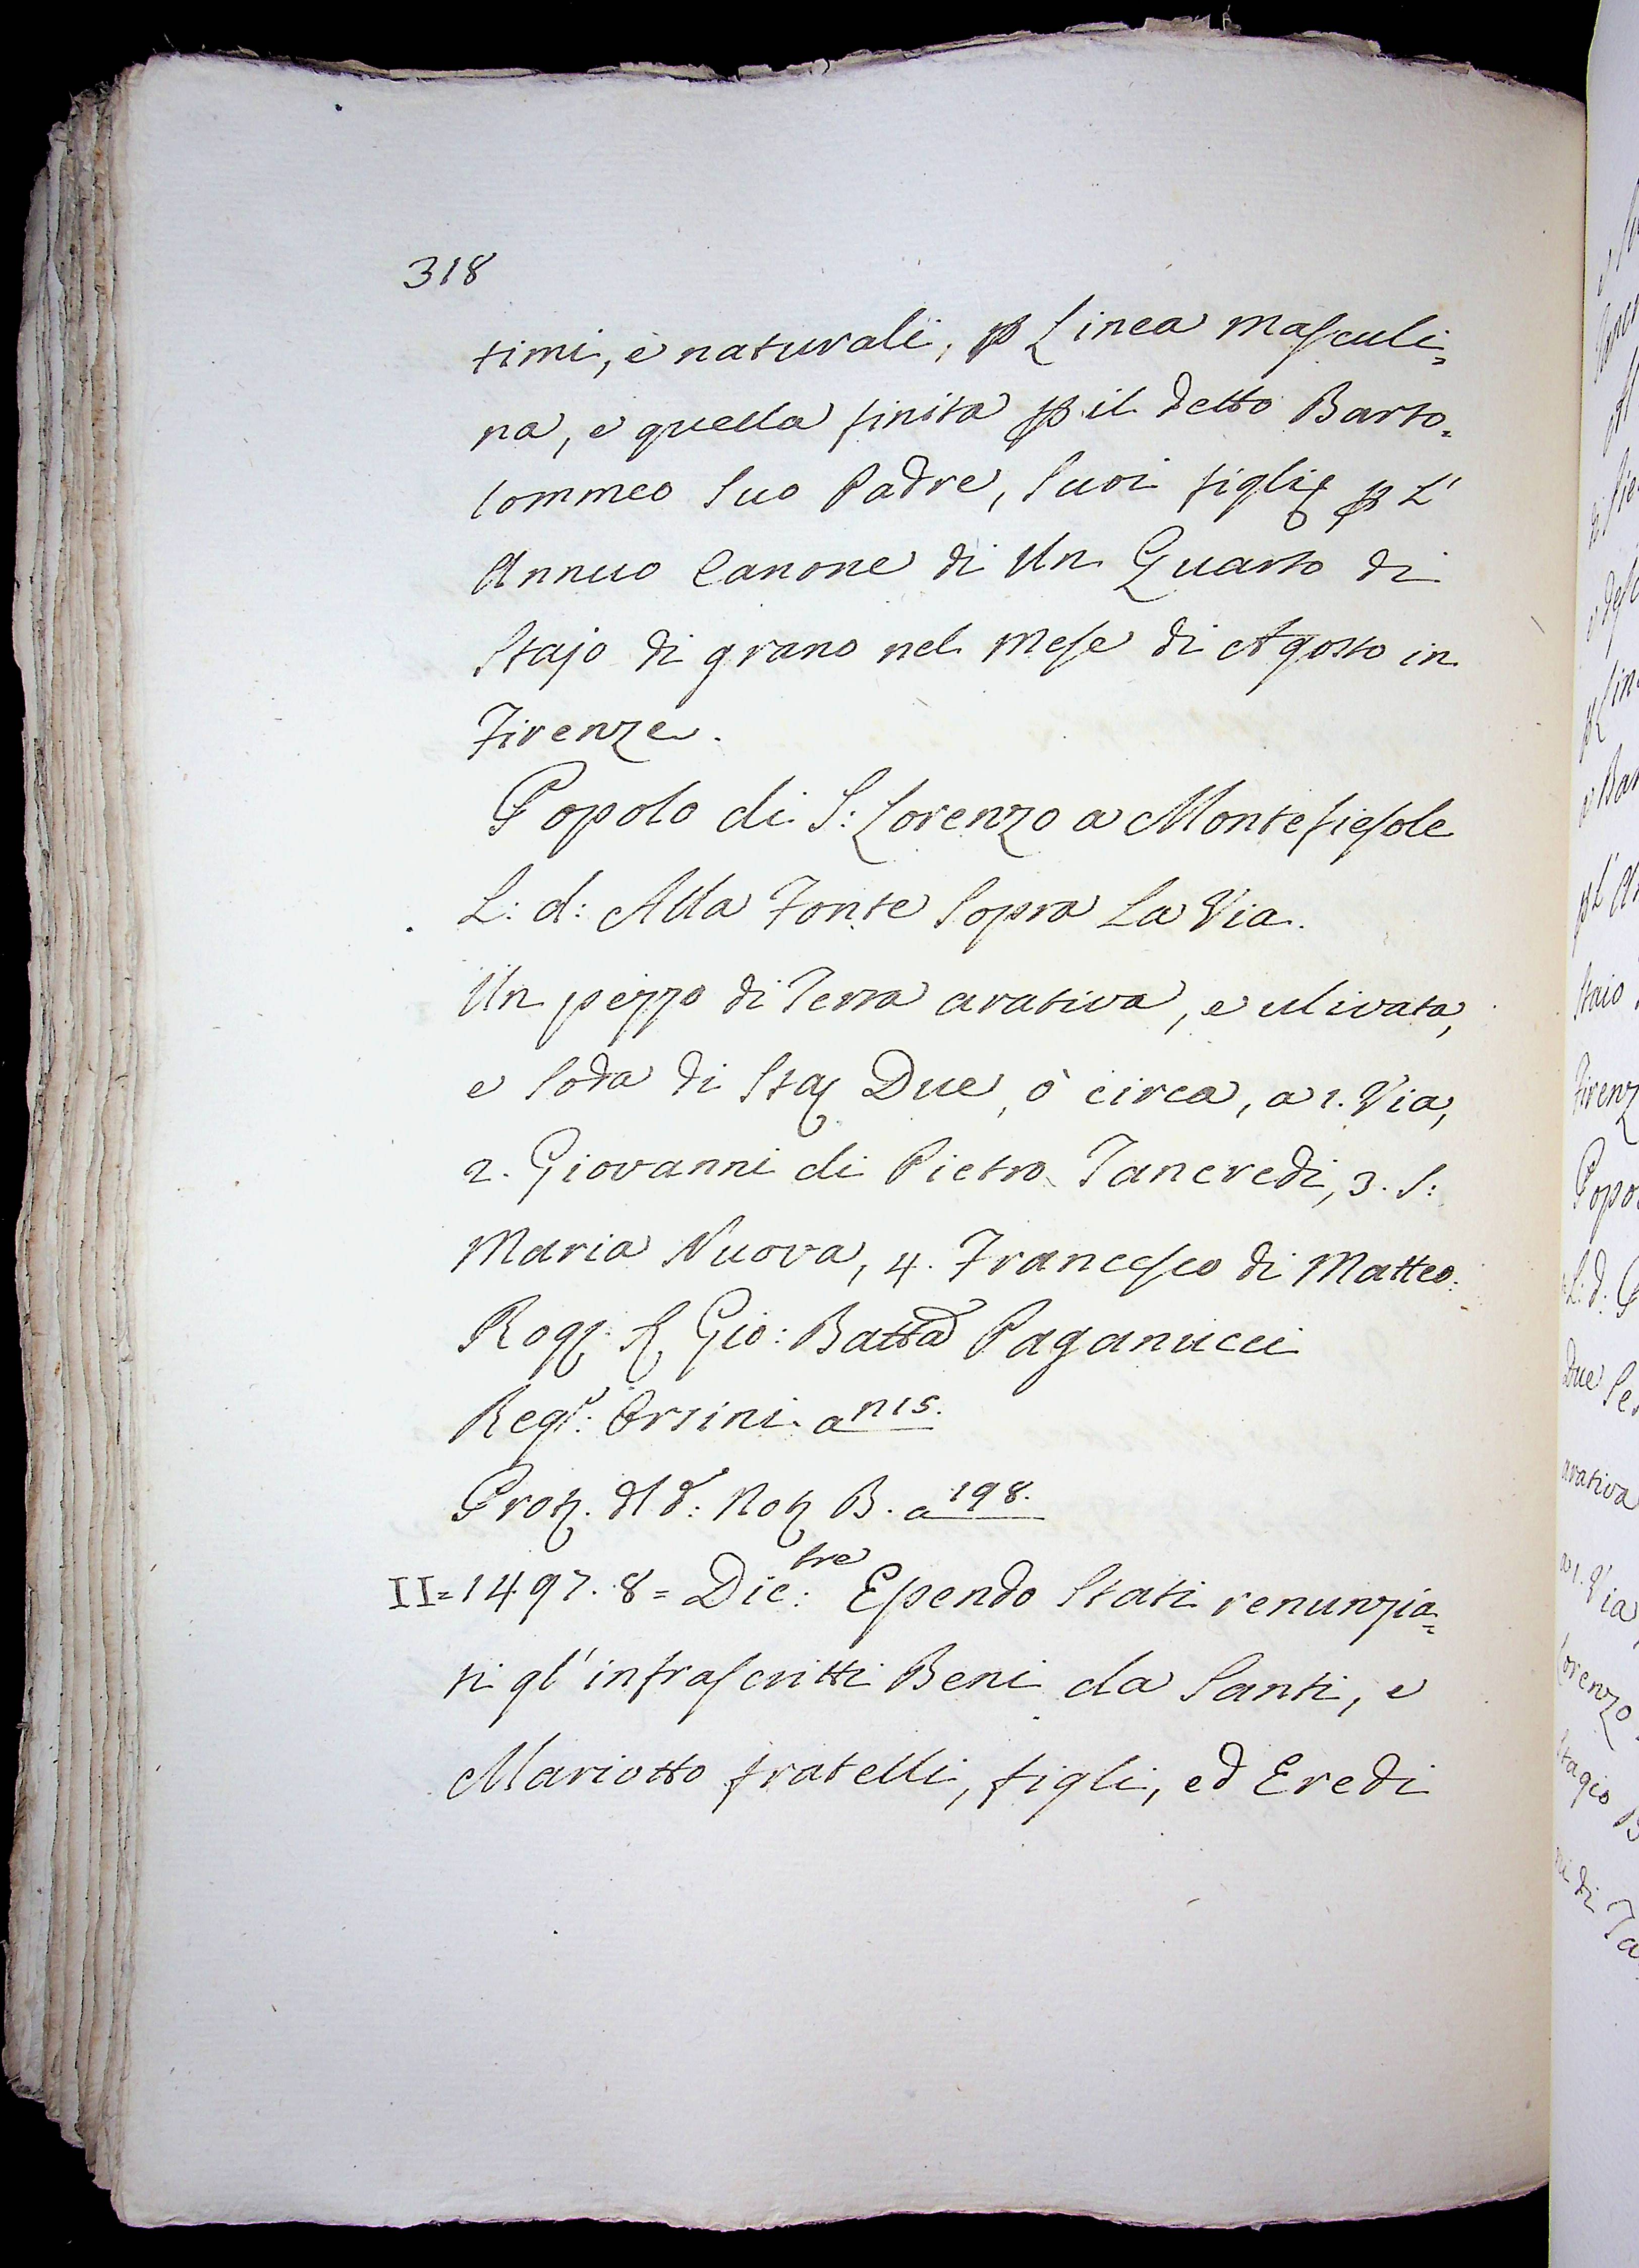 318
timi, e naturali, p Linea masculi=
na, e quella finita p il detto Barto=
lommeo Suo Padre, Suoi figlij p L'
Annuo Canone di Un Quarto di
Stajo di grano nel mese di Agosto in
Firenze.
Popolo di S: Lorenzo a Montefiesole
L: d: Alla Fonte Sopra La Via.
Un pezzo di Terra arativa, e ulivata,
e Soda di Staj Due, ò circa, a 1. Via,
2. Giovanni di Pietro Tancredi, 3. S:
Maria Nuova, 4. Francesco di Matteo.
Rog: S Gio: Batta Paganucci
Regr: Orsini a n15.
Prot. dl d: Not B. a 198.
II=1497. 8= Dic:bre Essendo Stati renunzia=
ti gl'infrascritti Beni da Santi, e
Mariotto fratelli, figli, ed Eredi